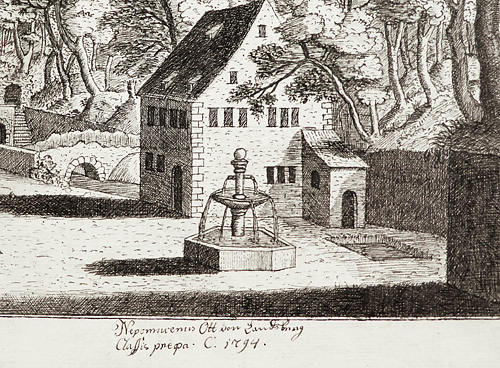 Nepomucenus Ott von Landsburg
Classis præpa. C. 1794.